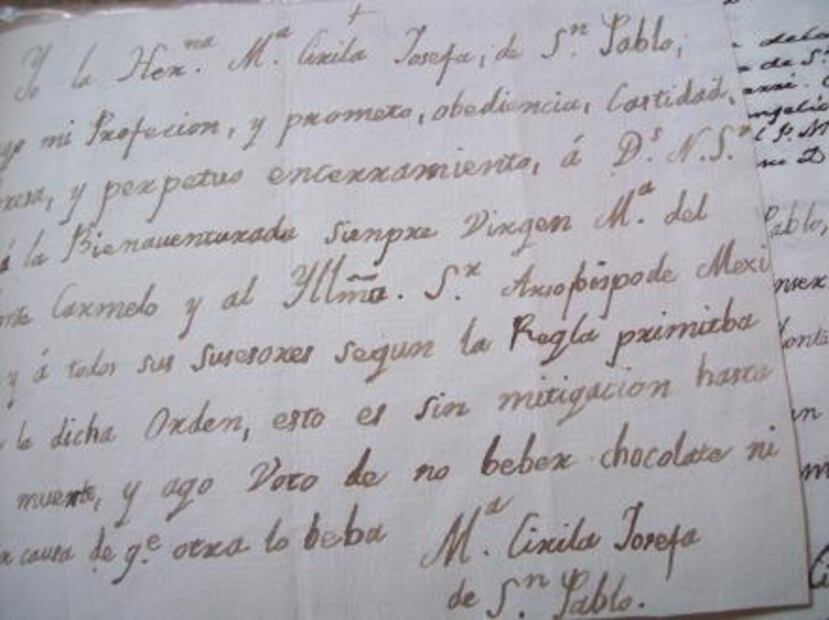 +
Yo la Her.na M.a Cirila Josefa, de S.n Pablo,
ago mi Profecion, y prometo, obediencia, Castidad,
y perpetuo encerramiento, á D.s N. S.r
á la Bienauenturada sienpre Virgen M.a del
Carmelo y al Yllmõ. S.r Arsobispo de Mexi
y á todos sus susesores segun la Regla primitba
la dicha Orden, esto es sin mitigacion hasta
muerte, y ago Voto de no beber chocolate ni
causa de q.e otra lo beba M.a Cirila Josefa
de S.n Pablo.
Pablo,